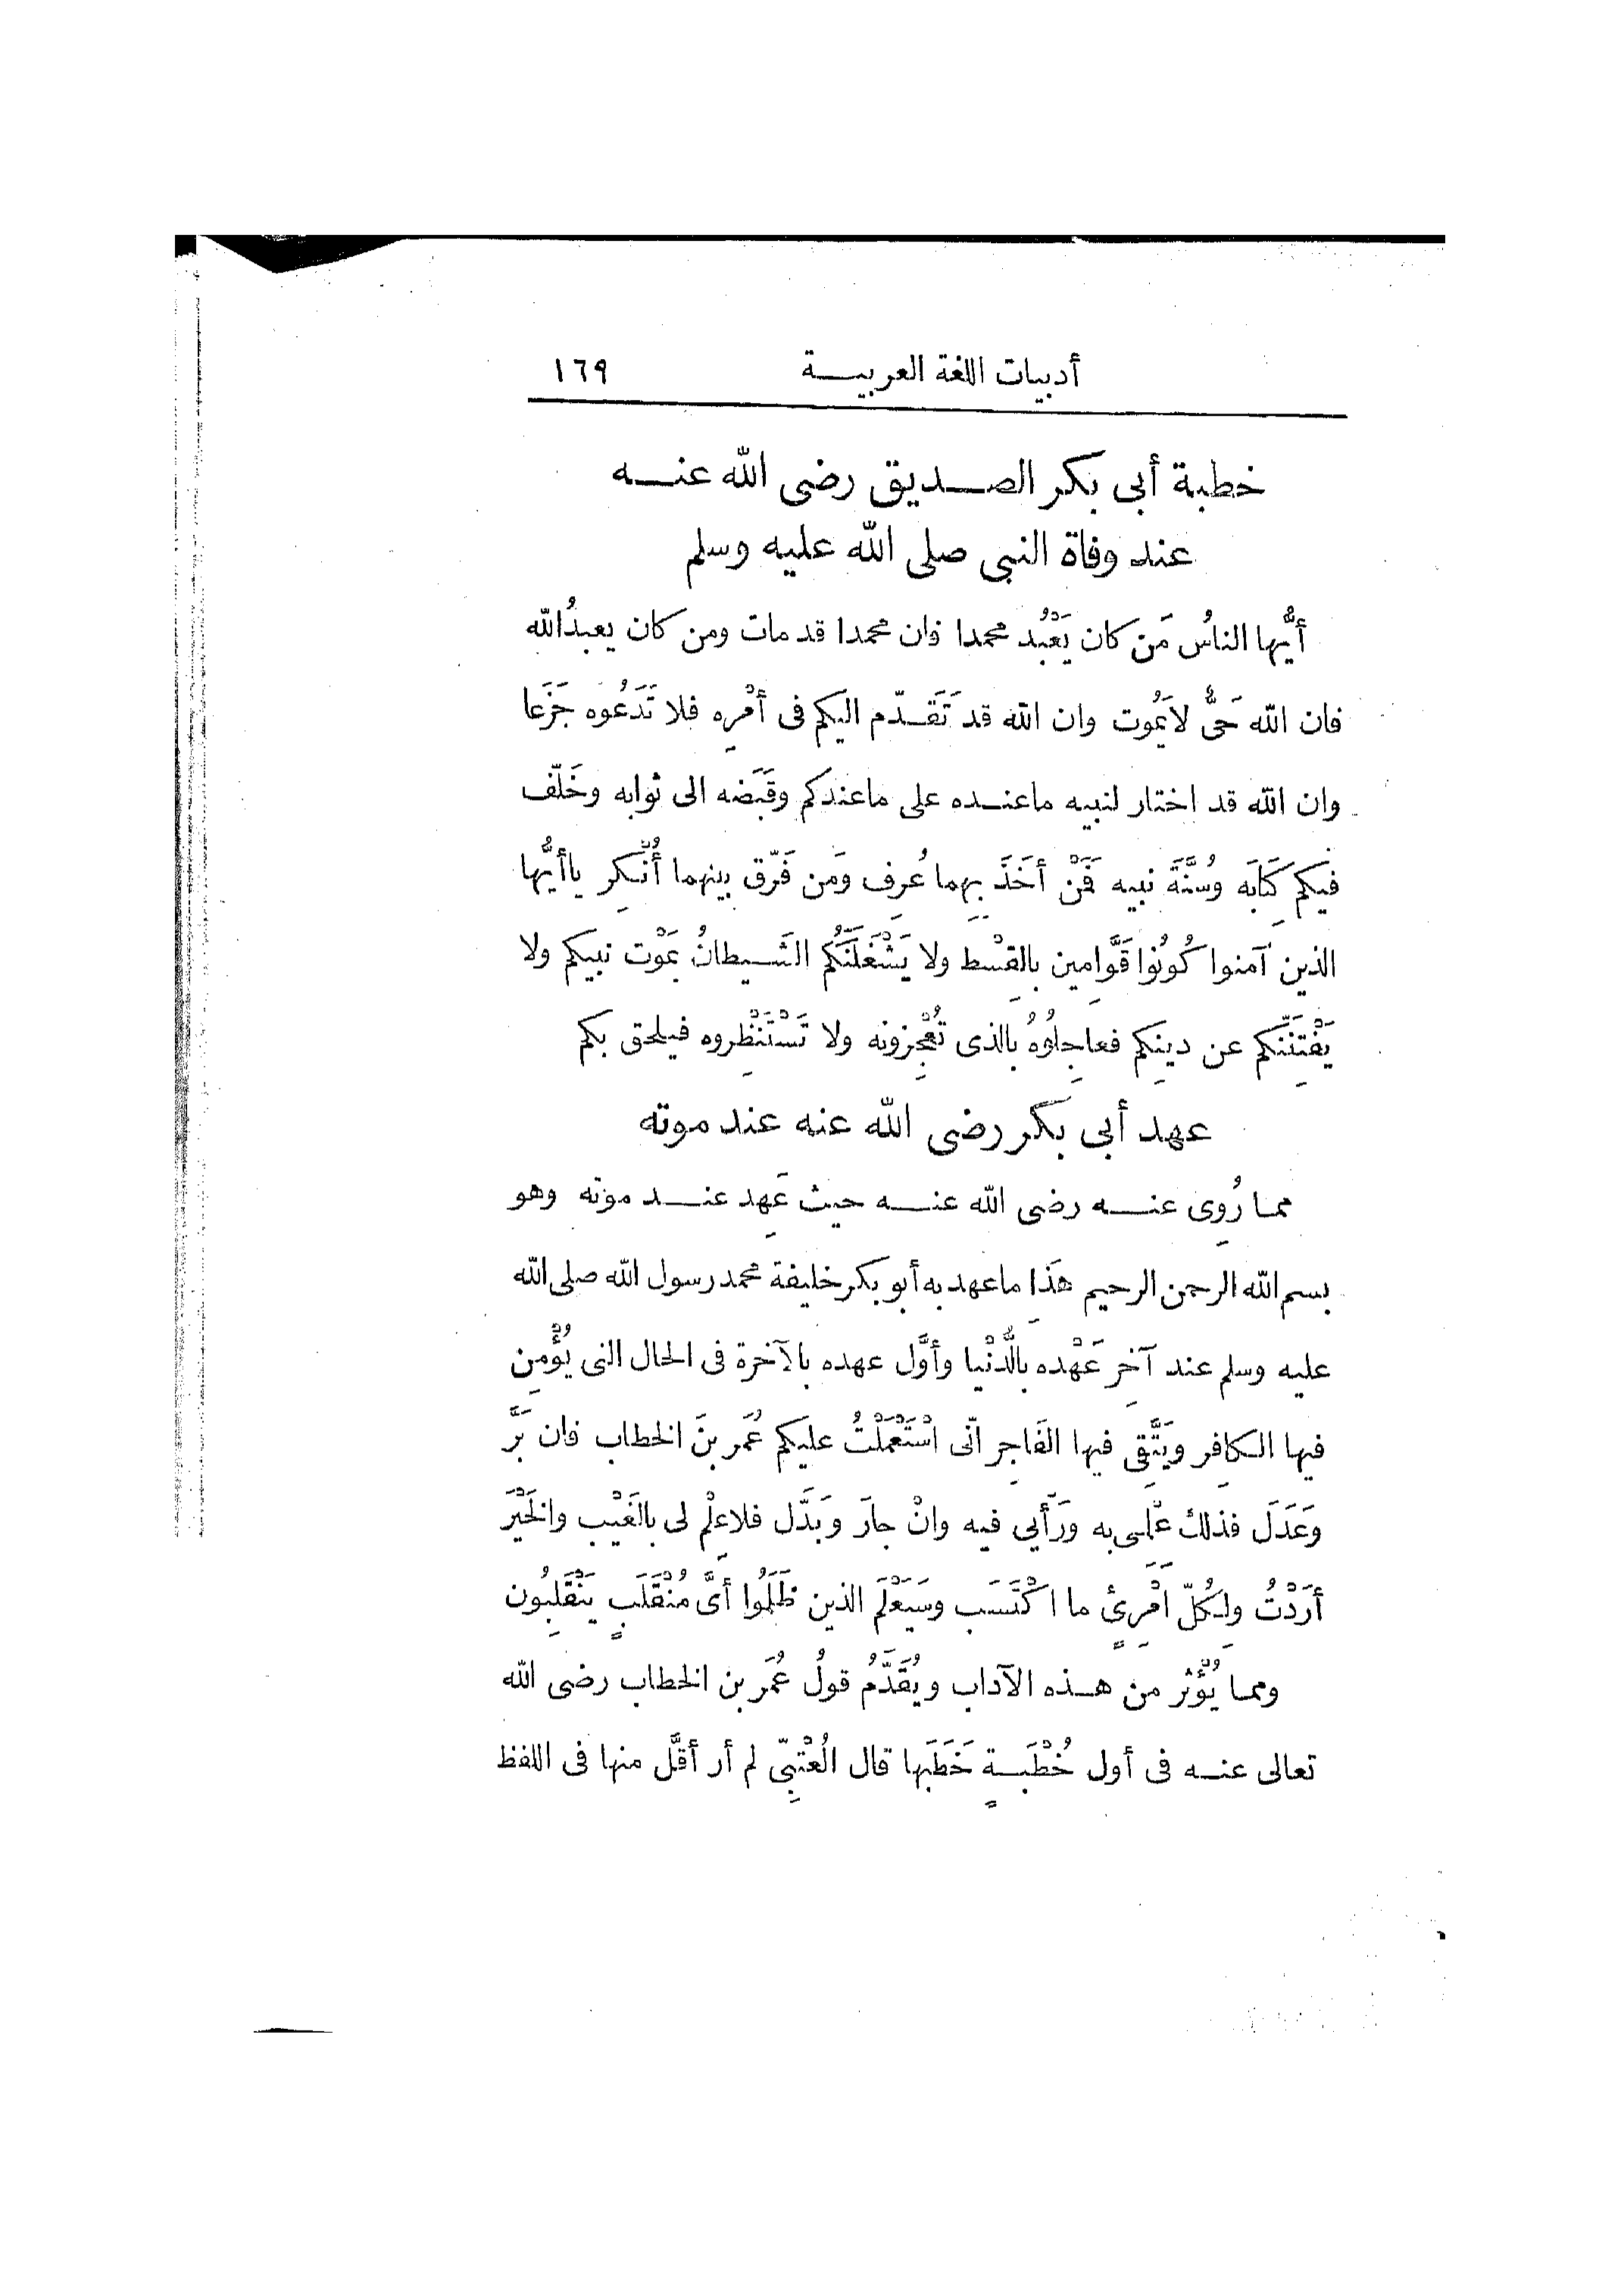 أدبيات اللغة العربيـــة ١٦٩
خطبة أبى بكر الصـــديق رضى الله عنـــه
عند وفاة النبى صلى الله عليه وسلم
أيُّها الناسُ مَن كان يَعْبُد محمدا فان محمدا قد مات ومن كان يعبدُ الله
فان الله حَىٌّ لا يَمُوت وان الله قد تَقَــدّم اليكم فى أَمْرِه فلا تَدَعُوه جَزَعا
وان الله قد اختار لنبيه ما عنــده على ما عندكم وقَبَضه الى ثوابه وخَلّف
فيكم كِتَابَه وسُنَّةَ نبيه فَمَنْ أَخَذَ بِهِما عُرِف ومَن فَرّق بينهما أُنْـكِر يا أيُّها
الذين آمنوا كُونُوا قَوَّامِين بالقِسْط ولا يَشْغَلَنَّكُم الشَــيطانُ بمَوْت نبيكم ولا
يَفْتِنَنَّكم عن دينِكم فعاجِلُوهُ بالذى تُعْجِزونه ولا تَسْتَنْظِروه فيلحق بكم
عهد أبى بكر رضى الله عنه عند موته
ممـا رُوِى عنـــه رضى الله عنـــه حيث عَهِد عنـــد موته وهو
بسم الله الرحمن الرحيم هَذَا ما عهد به أبو بكر خليفة محمد رسول الله صلى الله
عليه وسلم عند آخِر عَهْده بالُّدنْيا وأوَّل عهده بالآخرة فى الحال التى يُؤْمِن
فيها الـكافِر ويَتَّقِى فيها الفَاجِر انّى اسْتَعْمَلْتُ عليكم عُمَر بنَ الخطاب فان بَرَّ
وعَدَلَ فذلك عْلمِى به ورَأْيى فيه وانْ جارَ وبَدَّل فلا عِلْم لى بالغَيْب والخَيْرَ
أَرَدْتُ ولِـكُلّ امْرِئٍ ما اكْتَسَب وسَيَعْلَم الذين ظَلَمُوا أَىَّ مُنْقَلَبٍ يَنْقَلِبُون
وممـا يُؤْثر من هــذه الآداب ويُقَدَّمُ قولُ عُمَر بن الخطاب رضى الله
تعالى عنــه فى أول خُطْبَــةٍ خَطَبَها قال الْعُتْبِىّ لم أر أَقَلَّ منها فى اللفظ